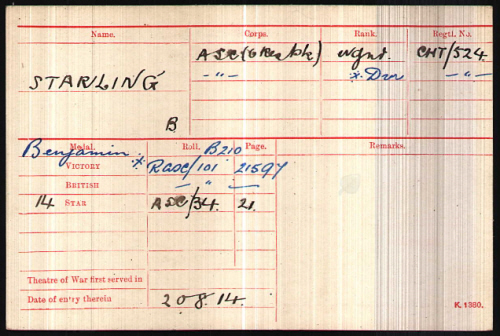 Name. Corps. Rank. Regtl. No.
ASC (6 Res Pk) Wgnr. CHT/524.
STARLING -"- * Dvr -"-
B
Medal. Roll. B210 Page. Remarks.
Benjamin.
VICTORY * RASC/101 21597
BRITISH -"-
14 STAR ASC/34. 21.
Theatre of War first served in
Date of entry therein 20.8.14.
K. 1380.